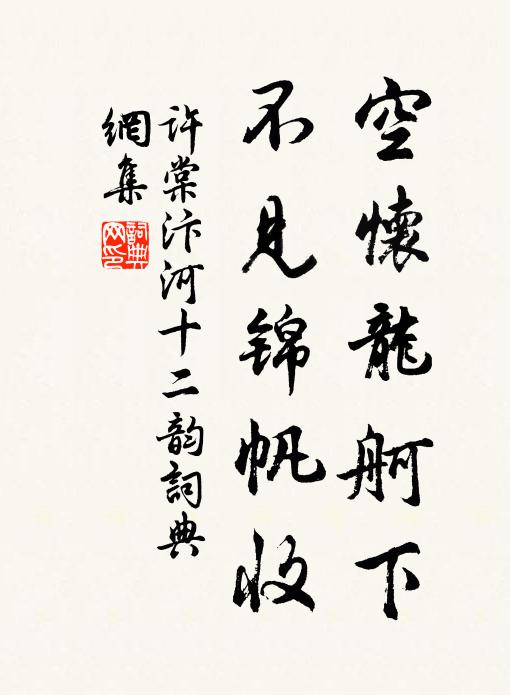 空懷龍舸下
不見錦帆收
許棠汴河十二韵詞典
網集
詞典
网印